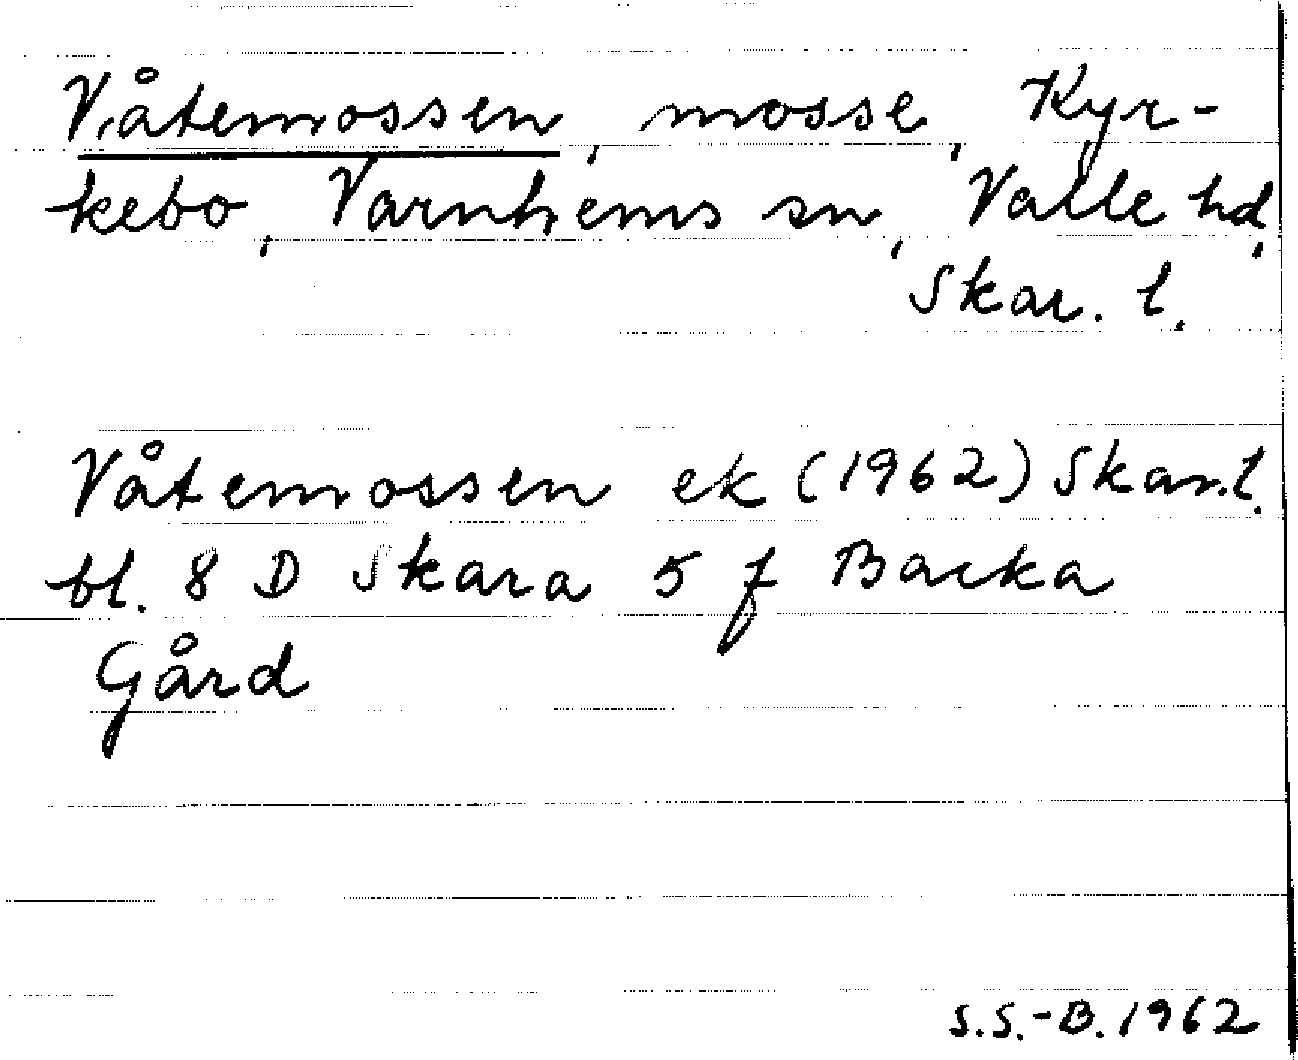 Våtemossen, mosse, Kyr-
kebo, Varnhems sn, Valle hd,
Skar. l.
Våtemossen ek (1962) Skar.l.
bl. 8 D Skara 5 f Backa
Gård
S.S.-B. 1962